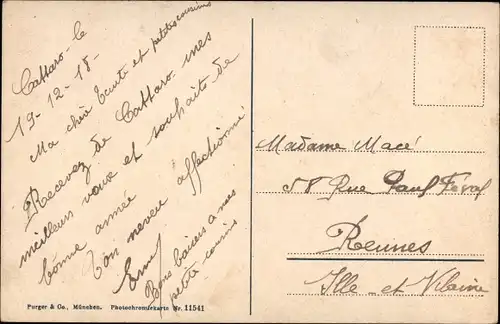 Cattaro le
19-12-18-
Ma chère tante et petites cousins
Recevez de Cattaro mes
meilleurs vœux et souhaits de
bonne année
Ton neveu affectionné
Bons baisers a mes
petite cousins
Madame Macé
58 Rue Paul Féval
Rennes
Ille-et Vilaine
Purger & Co., München. Photochromiekarte Nr. 11541